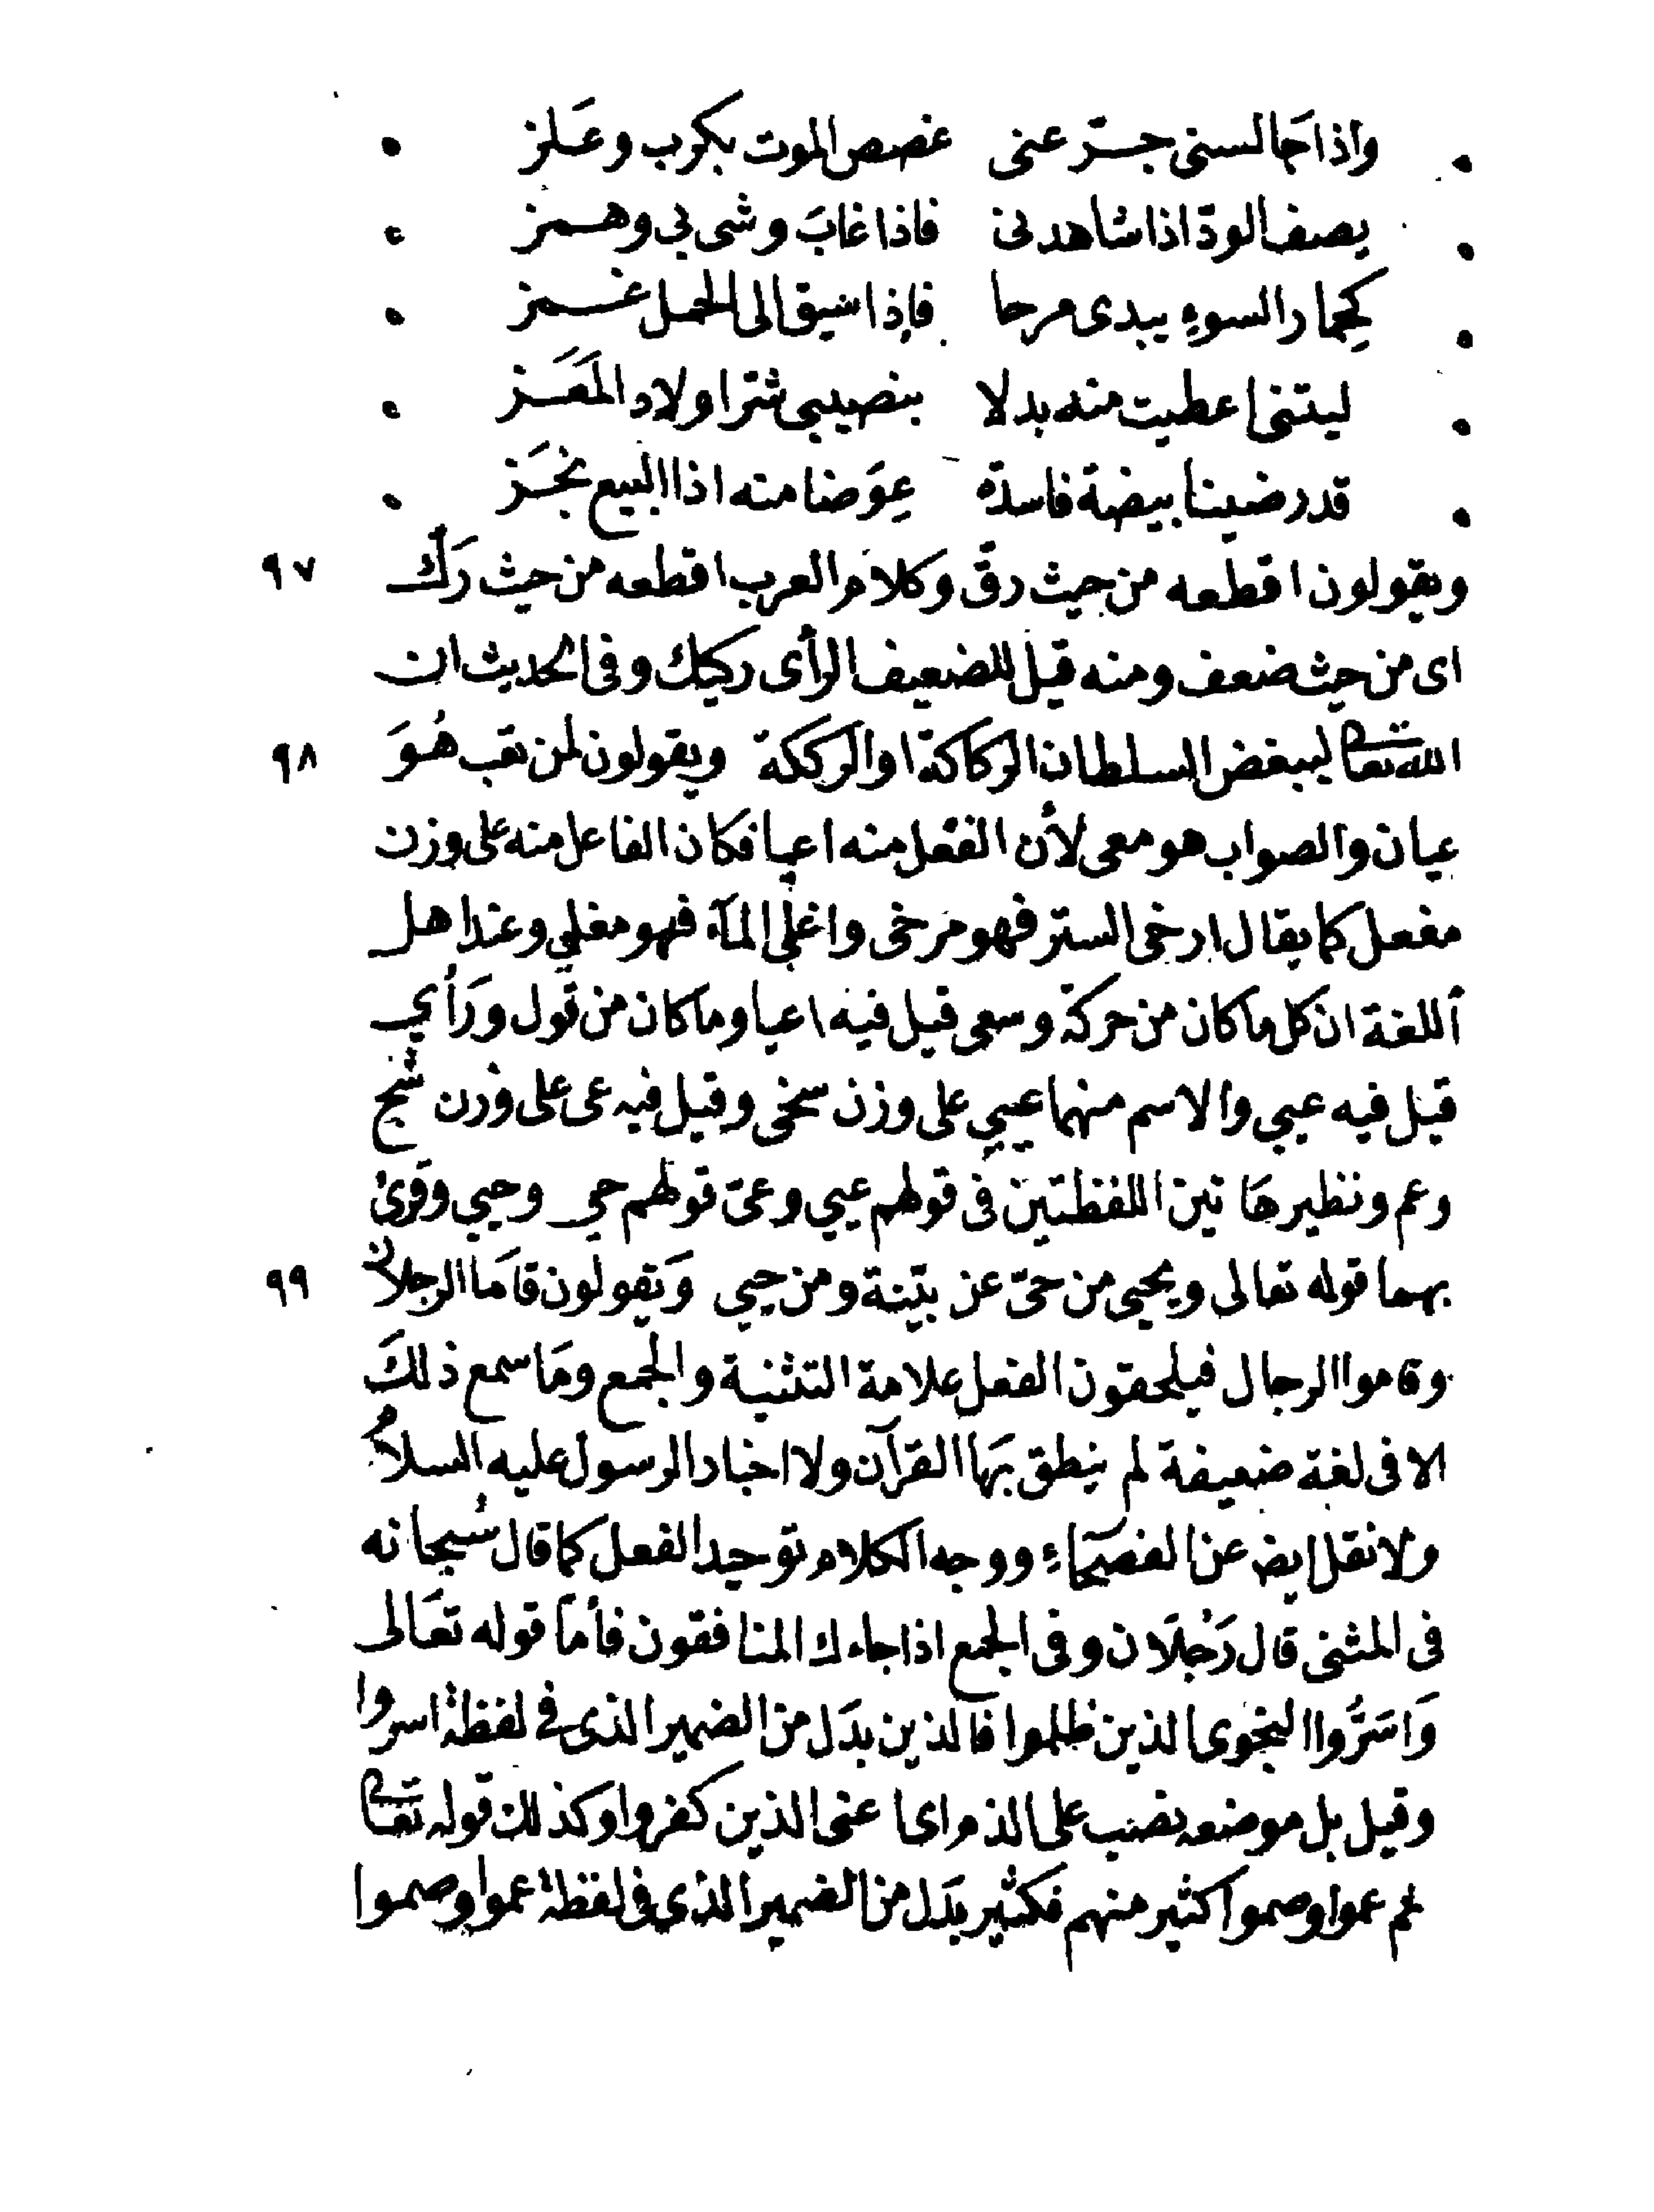 واذا جالسنى جرّعنى غصص الموت بكرب وعَلز
يصف الودّ اذا شاهدنى فاذا غابَ وشى بى وهمز
كحِمار السوءِ يبدى مرحا فإذا سيق الى الحمل غمز
ليتنى اعطيت منه بدلا بنصيبى شرّ اولاد المَعَز
قد رضينا بيضة فاسدة عِوَضا منه اذا البيع نجَز
ويقولون اقطعه من حيث رقّ وكلام العرب اقطعه من حيث ركّ ٩٧
اى من حيث ضعف ومنه قيل للضعيف الرأى ركيك وفى الحديث ان
الله تعالى ليبغض السلطان الركاكة او الركككة ويقولون لمن تعب هُوَ ٩٨
عيان والصواب هو معى لأن الفعل منه اعيا فكان الفاعل منه على وزن
مفعل كما يقال ارخى الستر فهو مرخى واغلى المآء فهو مغلي وعند اهل
أللغة ان كل ما كان من حركة وسعى قيل فيه اعيا وما كان من قول ورَأي
قيل فيه عيي والاسم منهما عيي على وزن سخى وقيل فيه عى على وزن شج
وعم ونظير هَاتين اللفظتين فى قولهم عيي وعىّ قولهم حي وحيي وقرئ
بهما قوله تعالى ويحيى من حىّ عن بيّنة ومن حيي وَيقولون قامَا الرجلان ٩٩
وقاموا الرجال فيلحقون الفعل علامة التثنية والجمع ومَا سمع ذلكَ
الا فى لغة ضعيفة لم ينطق بهَا القرآن ولا اخبار الرسول عليه السلامُ
ولا نقل ايض عن الفصحآءِ ووجه الكلام توحيد الفعل كما قال سُبحانه
فى المثنى قال رَجُلَان وفى الجمع اذا جاءك المنافقون فأمّا قوله تعَالى
وَاسَرُّوا النجوى الذين ظلموا فالذين بدَل من الضمير الذى فى لفظة اسروا
وقيل بل موضعه نصب على الذم اى اعنى الذين كفروا وكذلك قوله تعالى
ثم عموا وصموا كثير منهم فكثير بدَل من الضمير الذي فى لفظة عموا وصموا